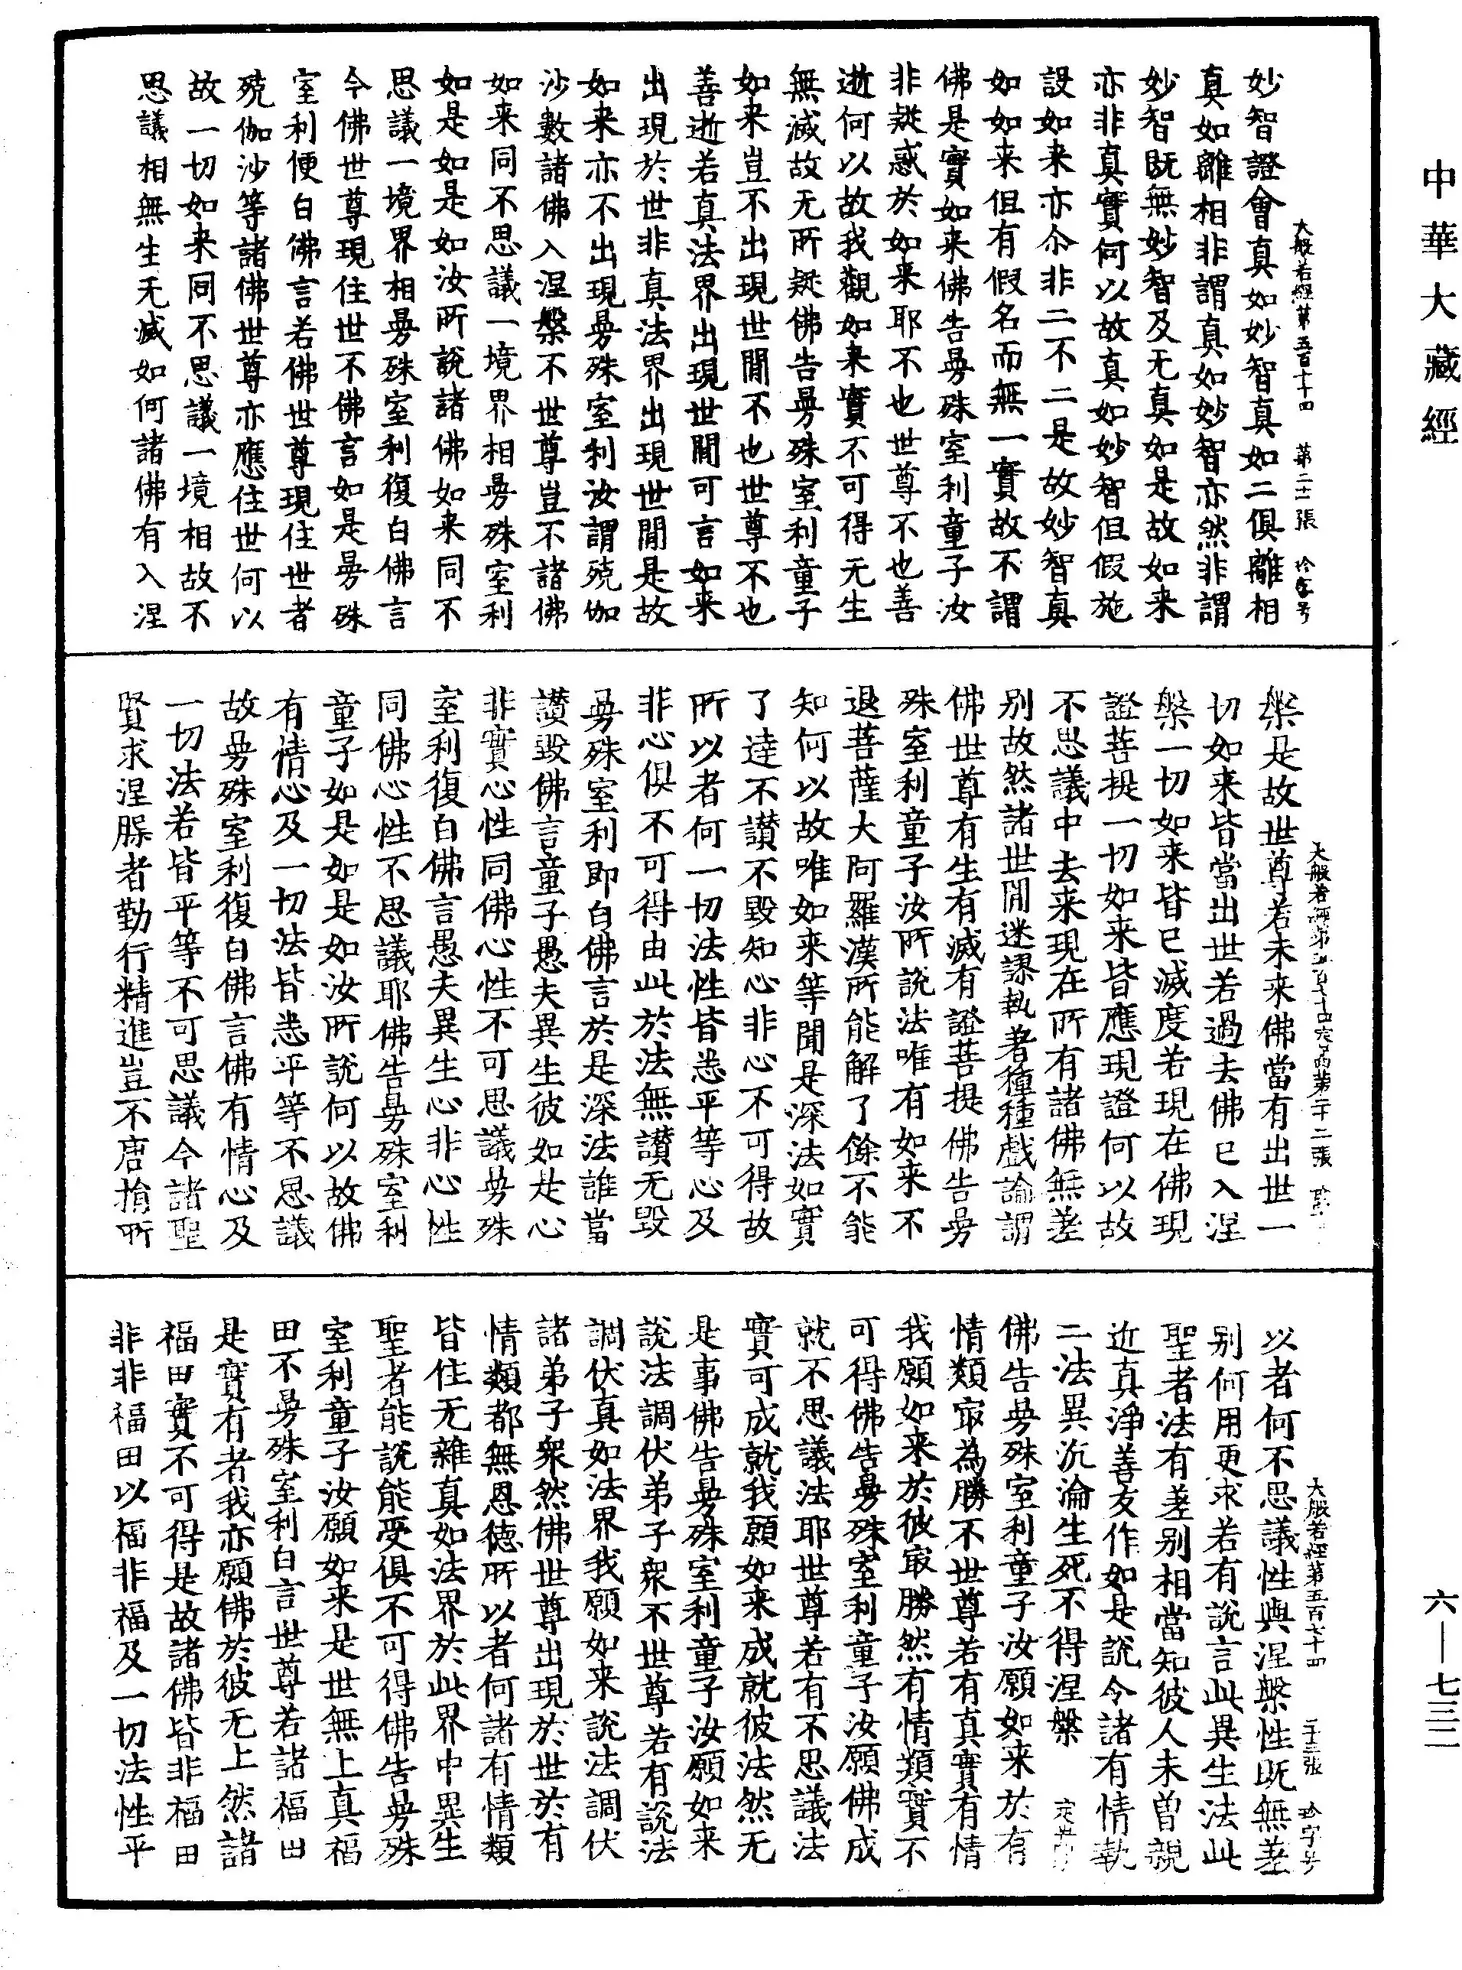 中華大藏經
大般若經第五百七十四 第二十一張 珍字号
妙智證會真如妙智真如二俱離相
真如離相非謂真如妙智亦然非謂
妙智既無妙智及无真如是故如来
亦非真實何以故真如妙智但假施
設如来亦尒非二不二是故妙智真
如如来但有假名而無一實故不謂
佛是實如来佛告曼殊室利童子汝
非疑惑於如来耶不也世尊不也善
逝何以故我觀如来實不可得无生
無滅故无所疑佛告曼殊室利童子
如来豈不出現世間不也世尊不也
善逝若真法界出現世間可言如来
出現於世非真法界出現世間是故
如来亦不出現曼殊室利汝謂殑伽
沙數諸佛入涅槃不世尊豈不諸佛
如来同不思議一境界相曼殊室利
如是如是如汝所說諸佛如来同不
思議一境界相曼殊室利復白佛言
今佛世尊現住世不佛言如是曼殊
室利便白佛言若佛世尊現住世者
殑伽沙等諸佛世尊亦應住世何以
故一切如来同不思議一境相故不
思議相無生无滅如何諸佛有入涅
大般若經第五百七十四 第二十二張
槃是故世尊若未来佛當有出世一
切如来皆當出世若過去佛已入涅
槃一切如来皆已滅度若現在佛現
證菩提一切如来皆應現證何以故
不思議中去来現在所有諸佛無差
別故然諸世間迷謬執著種種戲論謂
佛世尊有生有滅有證菩提佛告曼
殊室利童子汝所說法唯有如来不
退菩薩大阿羅漢所能解了餘不能
知何以故唯如来等聞是深法如實
了達不讚不毀知心非心不可得故
所以者何一切法性皆悉平等心及
非心俱不可得由此於法無讚无毀
曼殊室利即白佛言於是深法誰當
讚毀佛言童子愚夫異生彼如是心
非實心性同佛心性不可思議曼殊
室利復白佛言愚夫異生心非心性
同佛心性不思議耶佛告曼殊室利
童子如是如是如汝所說何以故佛
有情心及一切法皆悉平等不思議
故曼殊室利復白佛言佛有情心及
一切法若皆平等不可思議今諸聖
賢求涅槃者勤行精進豈不唐捐所
大般若經第五百七十四 二十三張 珍字号
以者何不思議性與涅槃性既無差
別何用更求若有說言此異生法此
聖者法有差別相當知彼人未曾親
近真淨善友作如是說令諸有情執
二法異沉淪生死不得涅槃
佛告曼殊室利童子汝願如来於有
情類㝡為勝不世尊若有真實有情
我願如来於彼㝡勝然有情類實不
可得佛告曼殊室利童子汝願佛成
就不思議法耶世尊若有不思議法
實可成就我願如来成就彼法然无
是事佛告曼殊室利童子汝願如来
說法調伏弟子衆不世尊若有說法
調伏真如法界我願如来說法調伏
諸弟子衆然佛世尊出現於世於有
情類都無恩德所以者何諸有情類
皆住无雜真如法界於此界中異生
聖者能說能受俱不可得佛告曼殊
室利童子汝願如来是世無上真福
田不曼殊室利白言世尊若諸福田
是實有者我亦願佛於彼无上然諸
福田實不可得是故諸佛皆非福田
非非福田以福非福及一切法性平
六—七三二